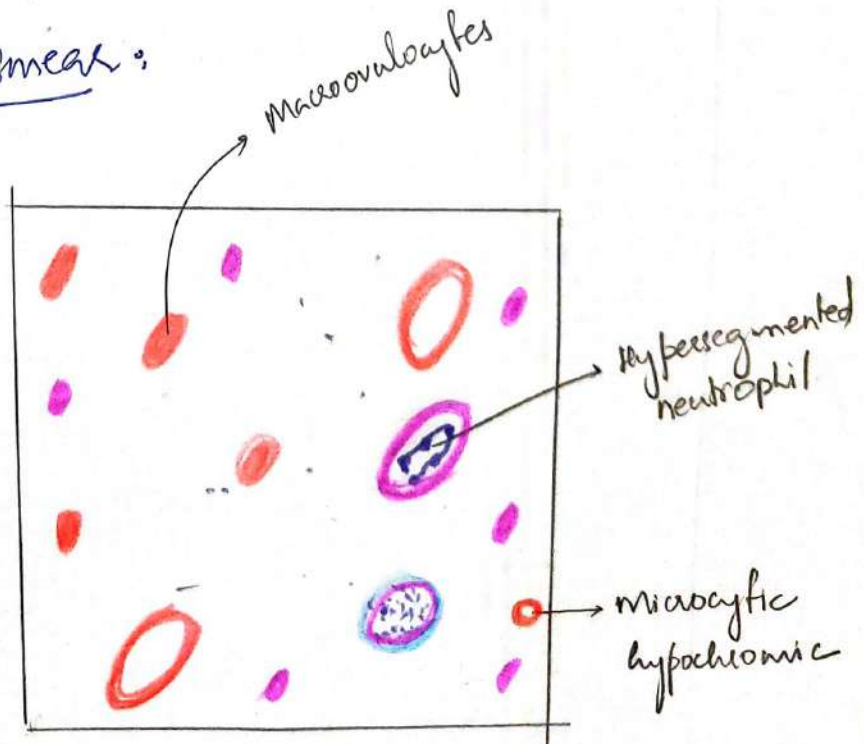 Smear:
Macroovalocytes
Hypersegmented
neutrophil
Microcytic
hypochromic